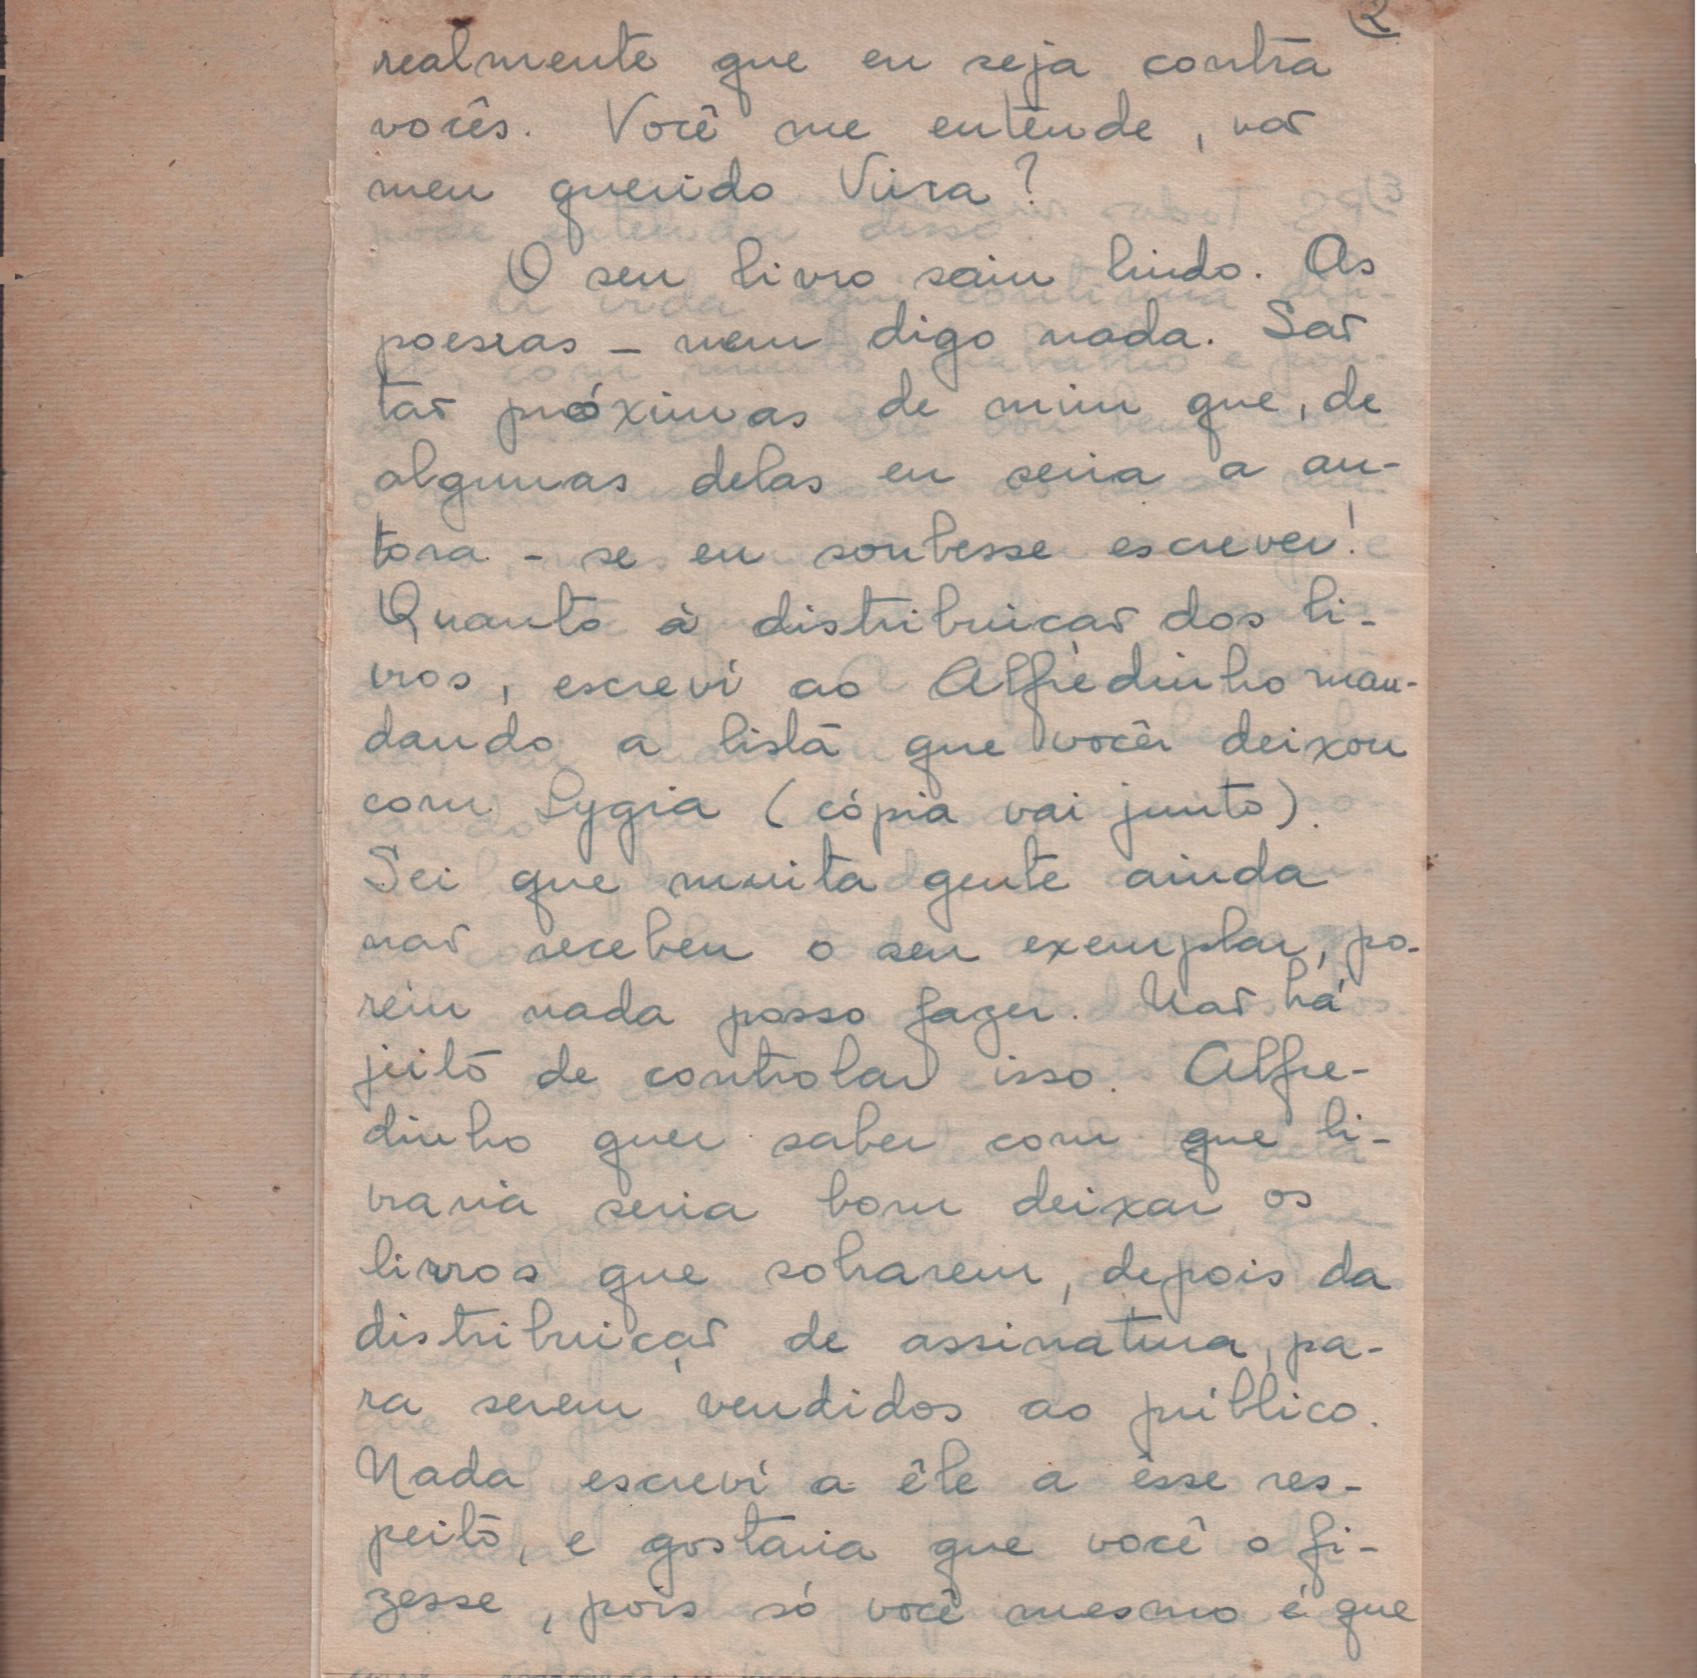 2
realmente que eu seja contra
vocês. Você me entende, não
meu querido Vira?
O seu livro saiu lindo. As
poesias - nem digo nada. São
tão próximas de mim que, de
algumas delas eu seria a au-
tora - se eu soubesse escrever!
Quanto à distribuição dos li-
vros, escrevi ao Alfredinho man-
dando a lista que você deixou
com Lygia (cópia vai junto).
Sei que muita gente ainda
não recebeu o seu exemplar, po-
rém nada posso fazer. Não há
jeito de controlar isso. Alfre-
dinho quer saber com que li-
vraria seria bom deixar os
livros que sobrarem, depois da
distribuição de assinatura, pa-
ra serem vendidos ao público.
Nada escrevi a êle a êsse res-
peito, e gostaria que você o fi-
zesse, pois só você mesmo é que